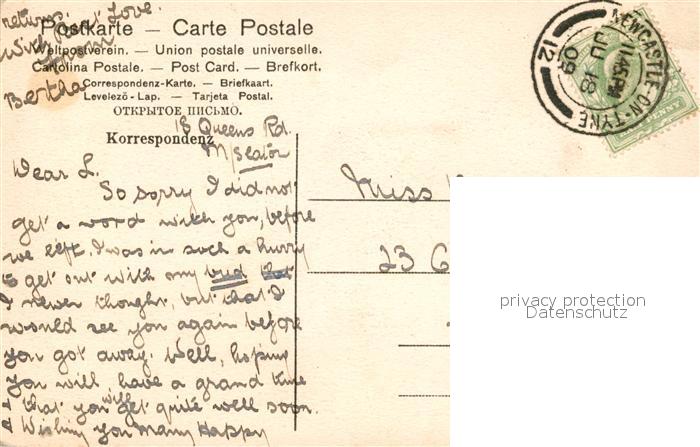 returns.
With best Love.
from
Bertha
Postkarte — Carte Postale
Weltpostverein. — Union postale universelle.
Cartolina Postale. — Post Card. — Brefkort.
Correspondenz-Karte. — Briefkaart.
Levelező-Lap. — Tarjeta Postal.
ОТКРЫТОЕ ПИСЬМО.
Korrespondenz
18 Queens Rd.
Dear L.
So sorry I did not
get a word with you, before
we left. I was in such a hurry
to get out with my bud that
I never thought, but that I
would see you again before
you got away. Well, hoping
you will, have a grand time
& that you will get quite well soon.
& Wishing you Many Happy
NEWCASTLE-ON-TYNE
11.45 PM
JU 18
09
12
Miss
23
privacy protection
Datenschutz